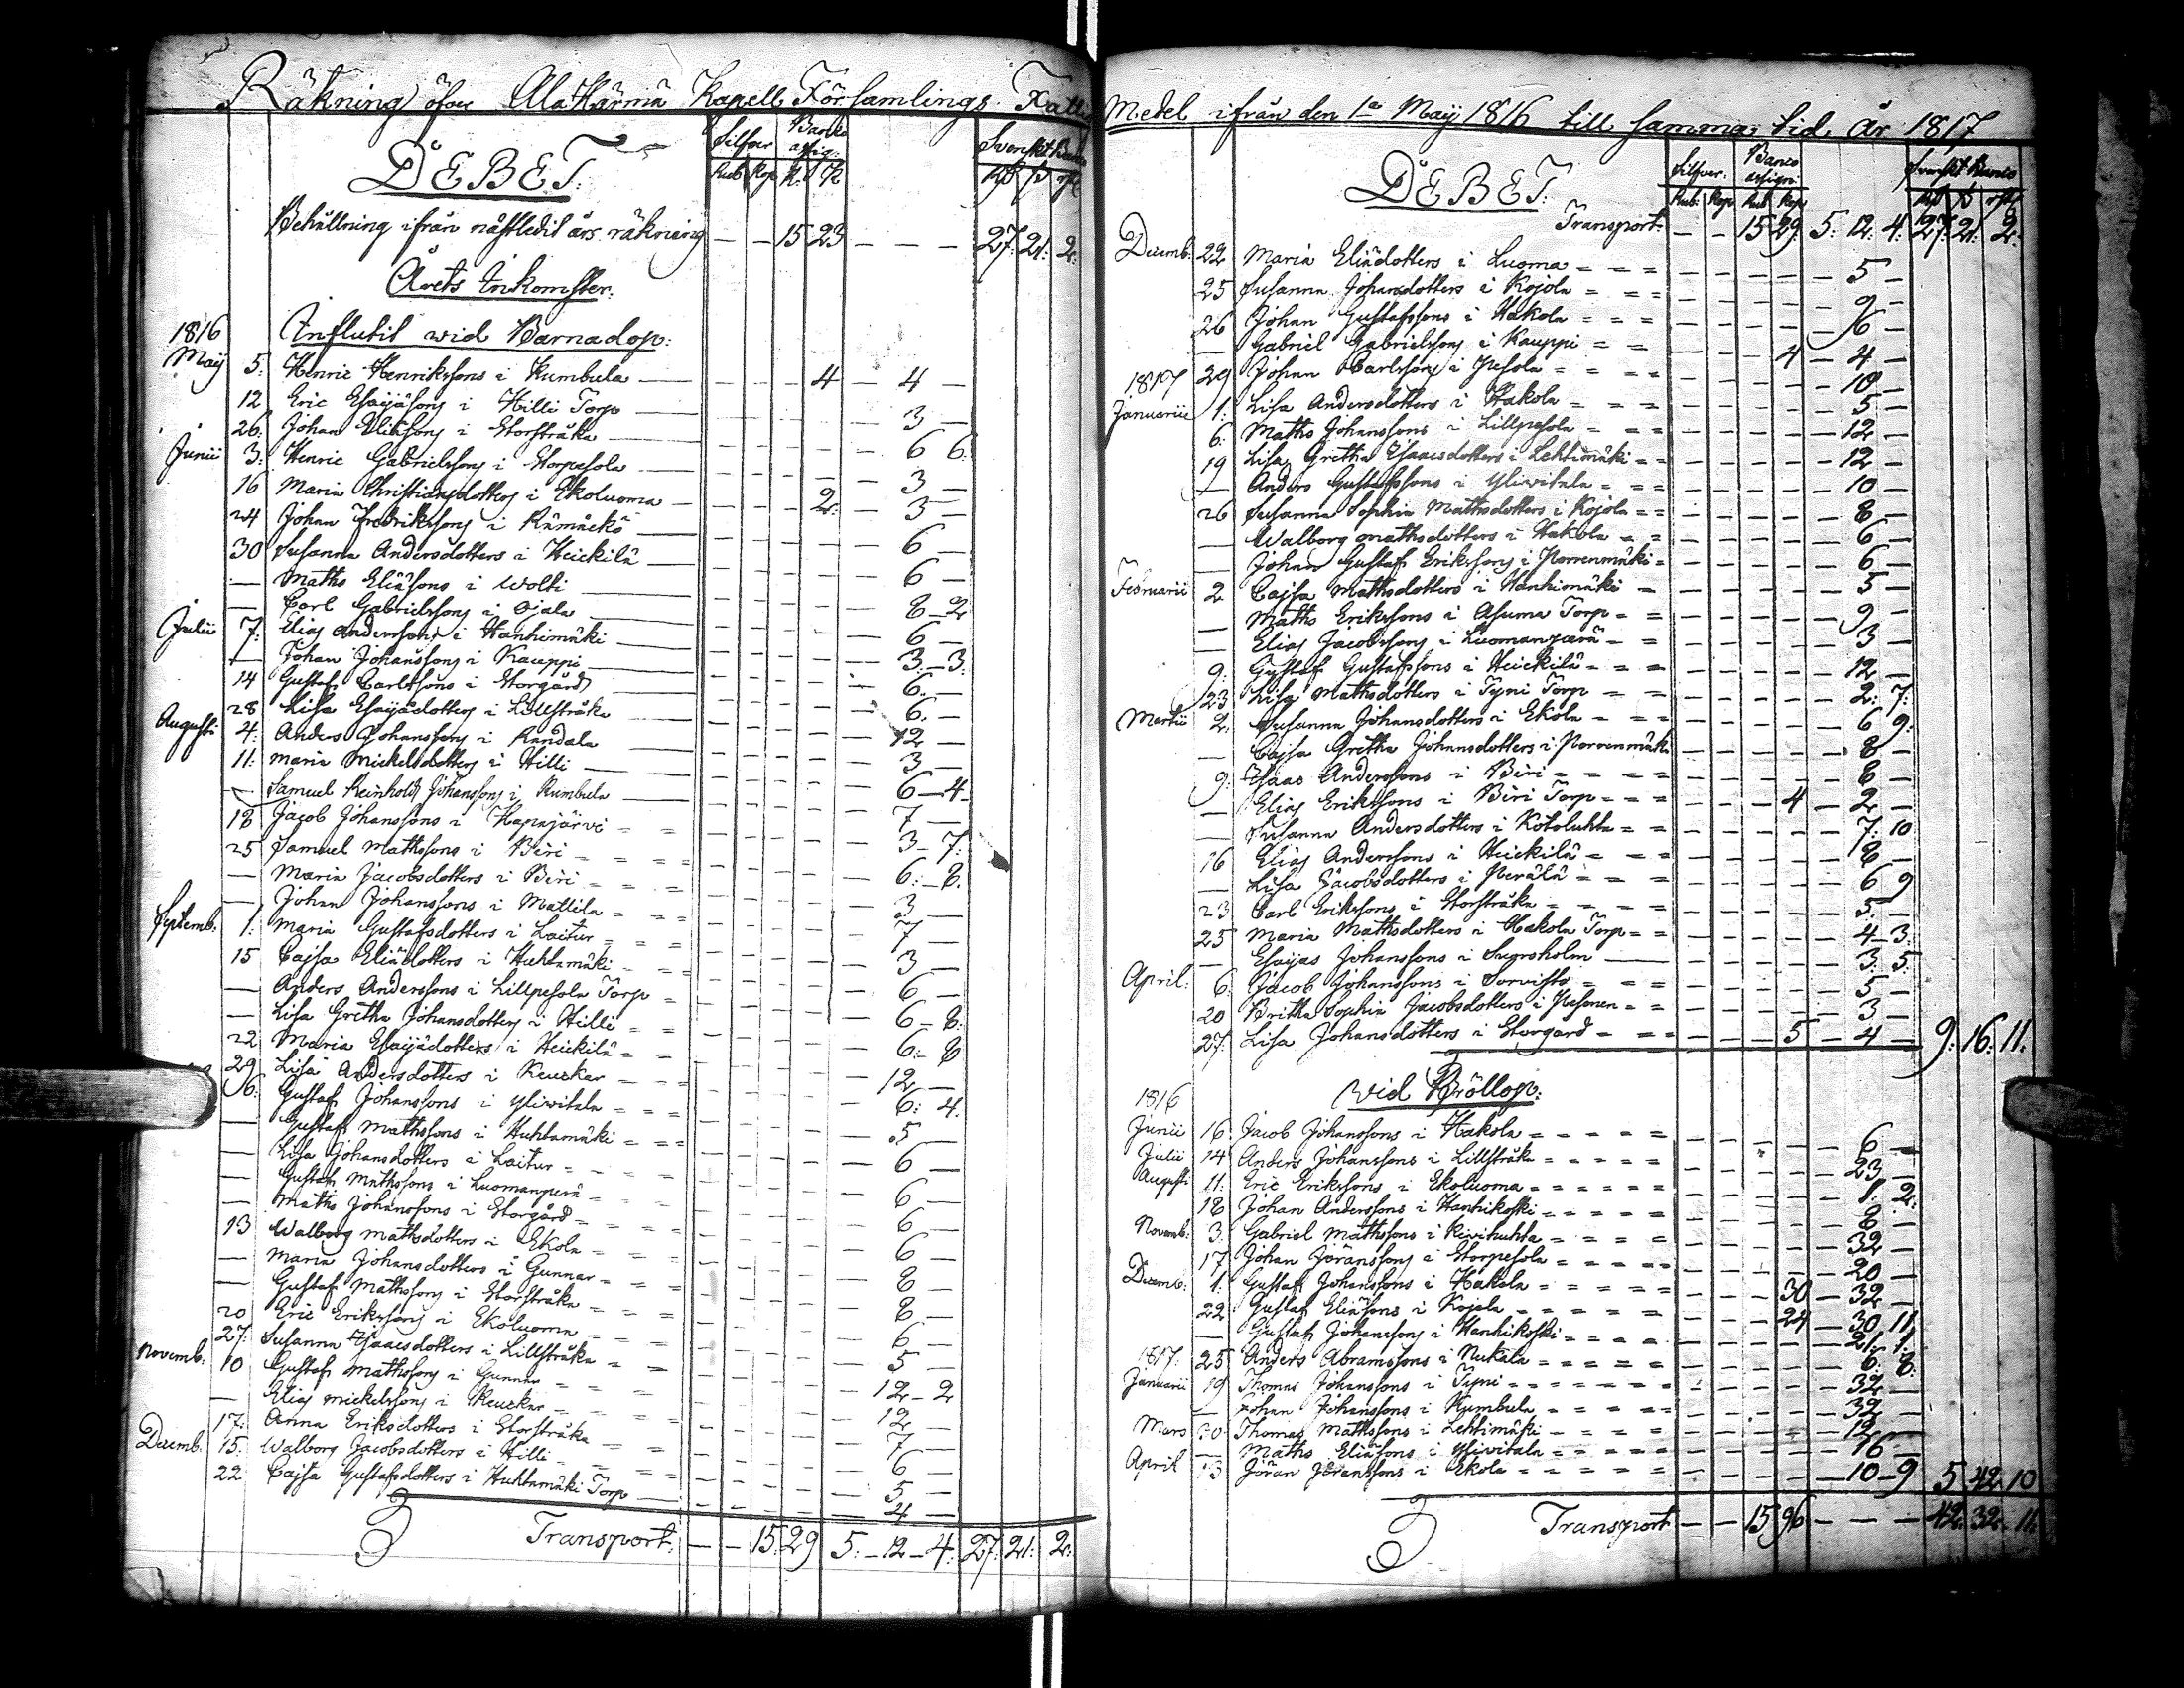 Räkning öfver Alakärmä Kapell Församlings Fatti
DEBET.
Silfver Banco assig: Svenskt Banco
Rub Kop R. K
Behållning ifrån nästledit års räkning — — 15 23 — — — 27: 21: 2:
Årets Inkomster.
1816 Influtit wid Barnadop:
Maij 5: Henric Henrikssons i Kumbula — — — 4 — 4 —
12 Eric Esaijäsons i Hilli Torp — 3 —
26: Johan Eliäsons i Storstråka — 6 6
Junii 3: Henric Gabrielssons i Storpesola — 3 —
16 Maria Christiansdotters i Ekoluoma — 2: — 3 —
24 Johan Fredrikssons i Rämäckö — 6 —
30 Susanna Andersdotters i Heickilä — 6 —
— Maths Eliäsons i Wolti — 8 — 2
— Carl Gabrielssons i Ojala — 6 —
Julii 7: Elias Anderssons i Hanhimäki — 3. — 3:
— Johan Johanssons i Kauppi — 6. —
14 Gustaf Carlssons i Storgård — 6. —
28 Lisa Esaijädotters i Lillstråka — 12 —
Augusti 4: Anders Johanssons i Randala — 3 —
11: Maria Mickelsdotters i Hilli — 6 — 4
— Samuel Reinhold Johanssons i Kumbula — 7 —
18 Jacob Johanssons i Hapajärvi — 3 — 7:
25 Samuel Mathssons i Biri — 6: — 8.
— Maria Jacobsdotters i Biri — 3 —
— Johan Johanssons i Mattila — 7 —
Septemb: 1: Maria Gustafsdotters i Laitur — 3 —
15 Cajsa Eliädotters i Huhtamäki — 6 —
— Anders Anderssons i Lillpesola Torp — 6 — 8
— Lisa Gretha Johansdotters i Hilli — 6: — 8
22 Maria Esaijädotters i Heickilä — 12 —
29 Lisa Andersdotters i Keuckar — 6: 4.
6: Gustaf Johanssons i Yliwitala — 5 —
— Gustaf Mathssons i Huhtamäki — 6 —
— Lisa Johansdotters i Laitur — 6 —
— Gustaf Mathssons i Luomanperä — 6 —
— Maths Johanssons i Storgård — 6 —
13 Walborg Mathsdotters i Ekola — 8 —
— Maria Johansdotters i Gunnar — 8 —
— Gustaf Mathssons i Storstråka — 6 —
20 Eric Erikssons i Ekoluoma — 5 —
27: Susanna Isaacsdotters i Lillstråka — 12 — 2
Novemb: 10 Gustaf Mathssons i Gunnar — 12 —
— Elias Mickelssons i Keuckar — 7 —
17: Anna Eriksdotters i Storstråka — 6 —
Decemb. 15: Walborg Jacobsdotters i Hilli — 5 —
22 Cajsa Gustafsdotters i Huhtamäki Torp — 4 —
Transport: — — 15: 29 5: — 12 — 4: 27: 21: 2:
Medel ifrån den 1a Maij 1816 till samma tid år 1817
DEBET:
Silfver: Banco assign: Svenskt Banco
Rub: Kop Rub Kop
Transport: — — 15 29 5: 12: 4: 27: 21: 2:
Decemb: 22 Maria Eliädotters i Luoma — 5 —
25 Susanna Johansdotters i Kojola — 9 —
26 Johan Gustafssons i Hakola — 6 —
— Gabriel Gabrielssons i Kauppi — 4 — 4 —
1817 29 Johan Carlssons i Pesola — 10 —
Januarii 1: Lisa Andersdotters i Hakola — 5 —
6: Maths Johanssons i Lillpesola — 12 —
19 Lisa Gretha Isaacsdotters i Lehtimäki — 12 —
— Anders Gustafssons i Yliwitala — 10 —
26 Susanna Sophia Mathsdotters i Kojola — 8 —
— Walborg Mathsdotters i Hakola — 6 —
— Johan Gustaf Erikssons i Porrenmäki — 6 —
Februarii 2 Cajsa Mathsdotters i Hanhimäki — 5 —
— Maths Erikssons i Asuma Torp — 9 —
— Elias Jacobssons i Luomanperä — 3 —
9: Gustaf Gustafssons i Heickilä — 12 —
23 Lisa Mathsdotters i Tyni Torp — 2: 7:
Martii 2: Susanna Johansdotters i Ekola — 6 9:
— Cajsa Gretha Johansdotters i Porrenmäki — 8 —
9: Isaac Anderssons i Biri — 8 —
— Elias Erikssons i Biri Torp — 4 — 2 —
— Susanna Andersdotters i Kotoluhta — 7: 10
16 Elias Anderssons i Heickilä — 8 —
— Lisa Jacobsdotters i Perälä — 6 9
23 Carl Erikssons i Storstråka — 5: —
25 Maria Mathsdotters i Hakola Torp — 4 — 3:
— Esaijas Johanssons i — 3: 5:
April: 6: Jacob Johanssons i Sorvisto — 5 —
20 Britha Sophia Jacobsdotters i Pesonen — 3 —
27: Lisa Johansdotters i Storgård — 5 — 4 — 9: 16: 11:
1816 wid Bröllop:
Junii 16 Jacob Johanssons i Hakola — 6 —
Julii 14 Anders Johanssons i Lillstråka — 23 —
Augusti 11: Eric Erikssons i Ekoluoma — 1: 2:
18 Johan Anderssons i Hanhikoski — 8 —
Novemb: 3: Gabriel Mathssons i Kivihuhta — 32 —
17 Johan Jöranssons i Storpesola — 20 —
Decemb: 1: Gustaf Johanssons i Hakola — 30 — 32 —
22 Gustaf Eliäsons i Kojola — 24 — 30 11
— Gustaf Johanssons i Hanhikoski — 21: 1:
1817: 25 Anders Abramssons i Nukala — 6: 8:
Januarii 19 Thomas Johanssons i Tyni — 32 —
— Johan Johanssons i Kumbula — 32 —
Mars 30 Thomas Mathssons i Lehtimäki — 12 —
April — Maths Eliäsons i Yliwitala — 16 —
13 Jöran Jöranssons i Ekola — 10 — 9 5 42 10
Transport — — 15 96 — — — 42: 32 11